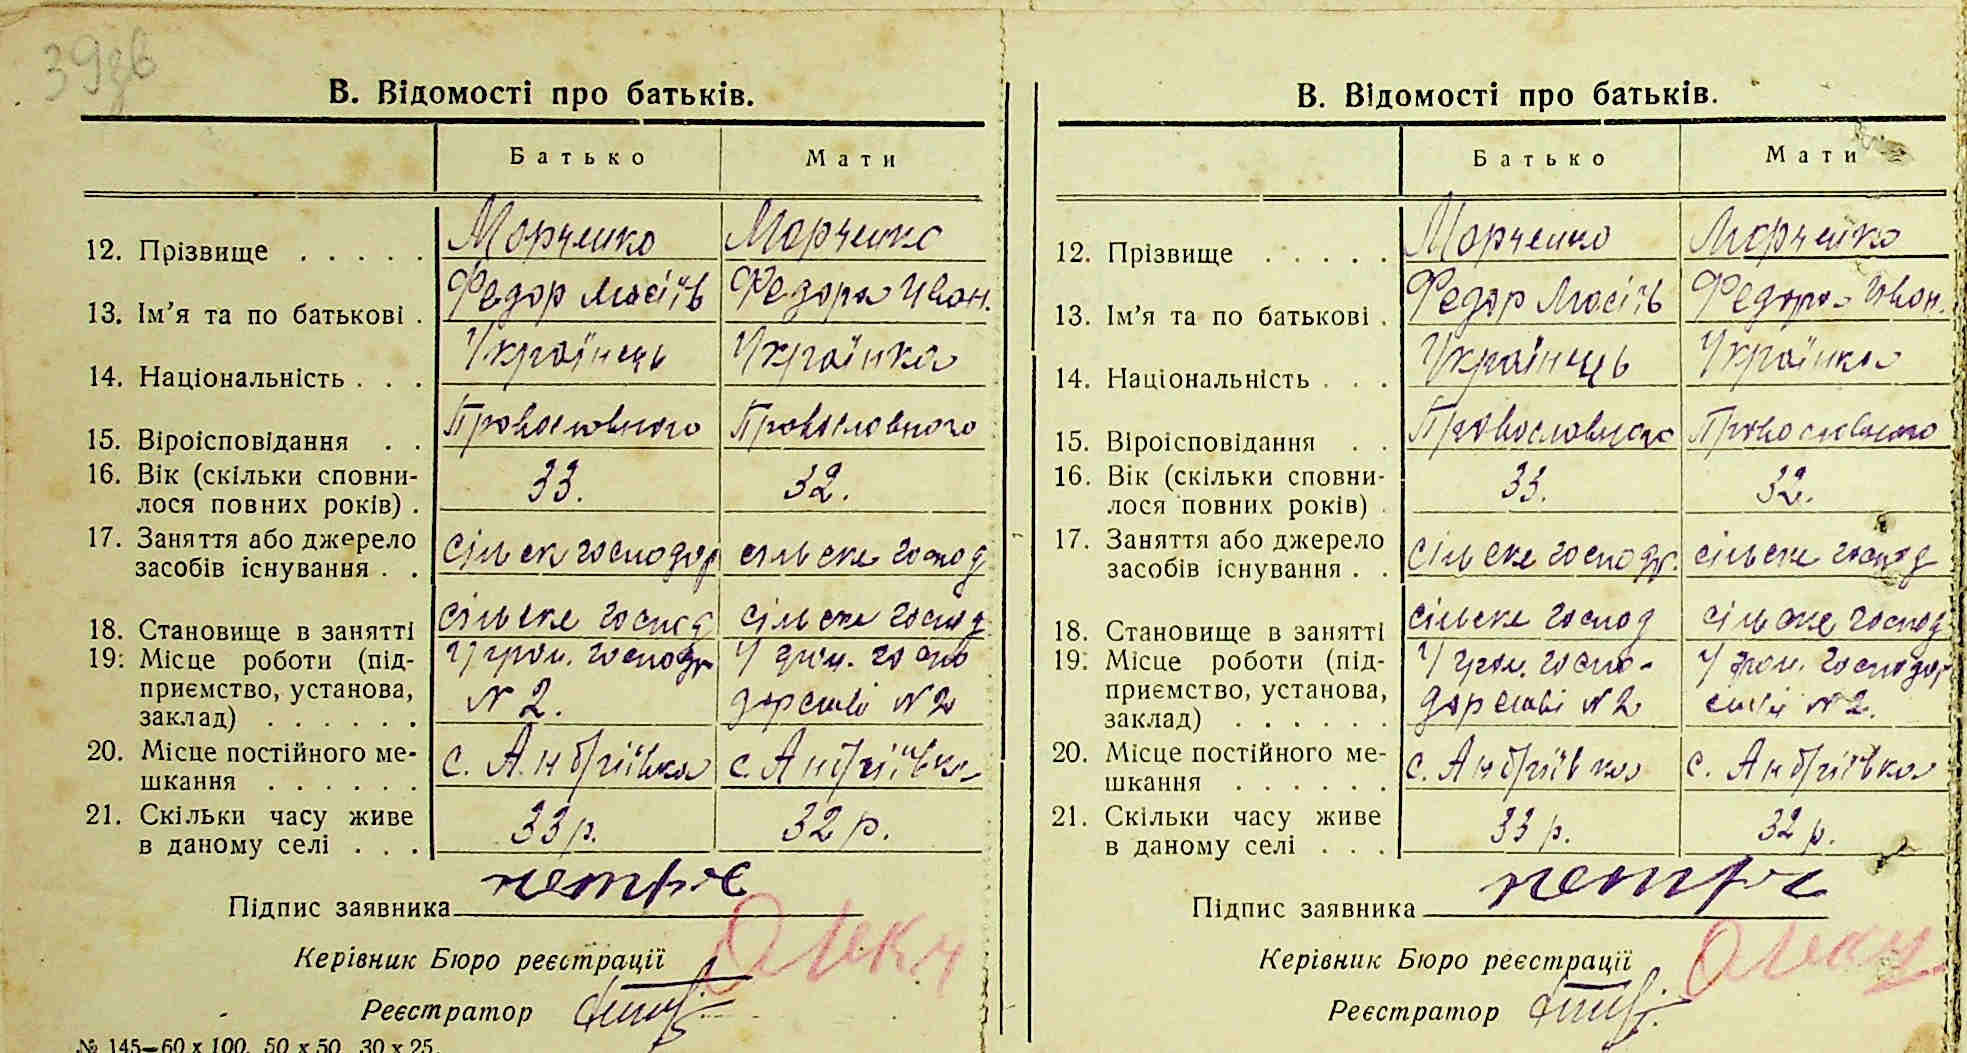 39зв
В. Відомості про батьків.
Батько Мати
12. Прізвище . . . . . Морченко Морченко
13. Ім'я та по батькові . Федор Мосіїв Федора Iвон.
14. Національність . . . Українець Українка
15. Віроісповідання . . Провословного Провословного
16. Вік (скільки сповни-
лося повних років) . 33. 32.
17. Заняття або джерело
засобів існування . . сільск господар сільске господ
18. Становище в занятті сільске господ сільске господ
19. Місце роботи (під- У гром. господр У гром. госпо
приємство, установа, N 2. дарстві N 2
заклад) . . . . . .
20. Місце постійного ме-
шкання . . . . . . с. Андріївка с. Андріївка
21. Скільки часу живе
в даному селі . . . 33 р. 32 р.
Підпис заявника
Керівник Бюро реєстрації
Реєстратор
№ 145—60 x 100. 50 x 50. 30 x 25.
В. Відомості про батьків.
Батько Мати
12. Прізвище . . . . . Морченко Морченко
13. Ім'я та по батькові . Федор Мосіїв Федора Iвон.
14. Національність . . . Українець Українка
15. Віроісповідання . . Провословного Провословного
16. Вік (скільки сповни-
лося повних років) . 33. 32.
17. Заняття або джерело
засобів існування . . сільске господр. сільске господ
18. Становище в занятті сільске господ сільске господ
19. Місце роботи (під- У гром. госпо- У гром. господар
приємство, установа, дарстві N 2 стві N 2.
заклад) . . . . . .
20. Місце постійного ме-
шкання . . . . . . с. Андріївка с. Андріївка
21. Скільки часу живе
в даному селі . . . 33 р. 32 р.
Підпис заявника
Керівник Бюро реєстрації
Реєстратор